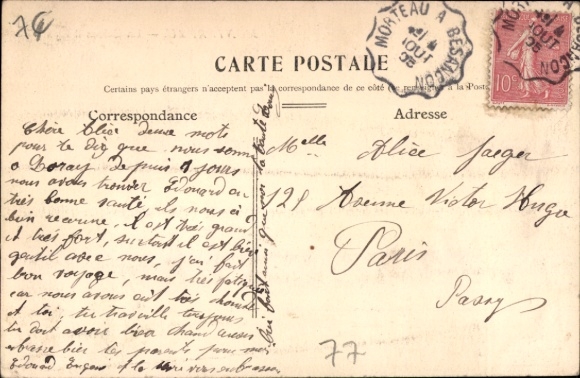 76
MORTEAU A BESANÇON
21
AOUT
05
10c
CARTE POSTALE
Certains pays étrangers n'acceptent pas la correspondance de ce côté (se renseigner à la Poste)
Correspondance
Adresse
Chère Alice deux mots
pour te dir que nous somme
a Doray depuis 7 jours
nous avons trouver Edouard en
très bonne santé ils nous a
bien recevue il est très grand
et très fort, surtout il est bien
gentil avec nous, j'ai fait
bon voyage, mais très fatiguer
car nous avons eut très chaud
et toi, tu travaille toujours
tu doit avoir bien chaud aussi
embrasse bien tes parents pour moi
Edouard Eugene et la
Melle Alice Jaeger
121 Avenue Victor Hugo
Paris
Passy
77